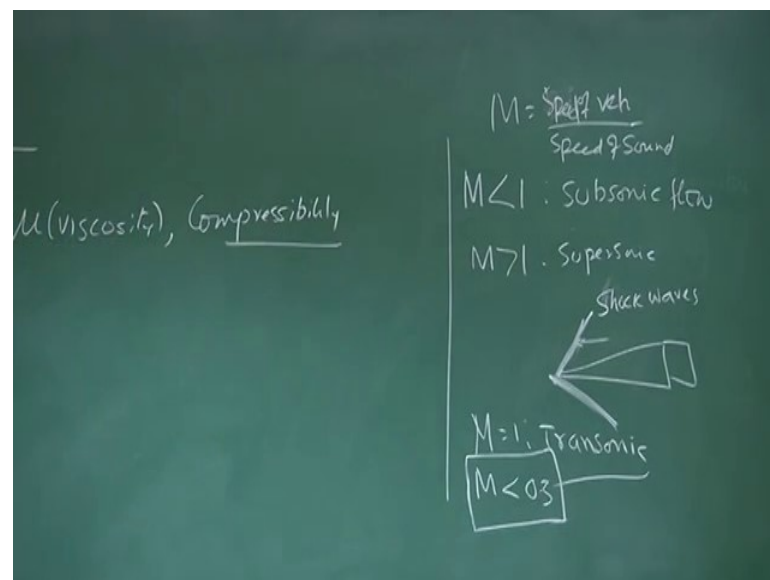 μ(viscosity), Compressibility
M = Speed of veh
Speed of Sound
M<1 : Subsonic flow
M>1 . Supersonic
Shock waves
M=1 : Transonic
M<03